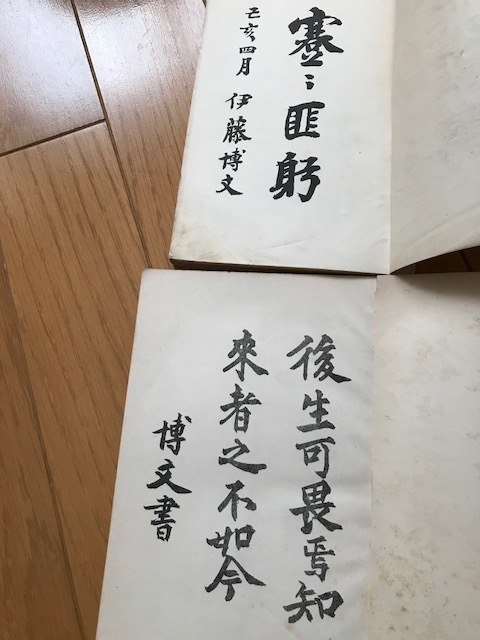 蹇〻匪躬
己亥四月 伊藤博文
後生可畏焉知
來者之不如今
博文書